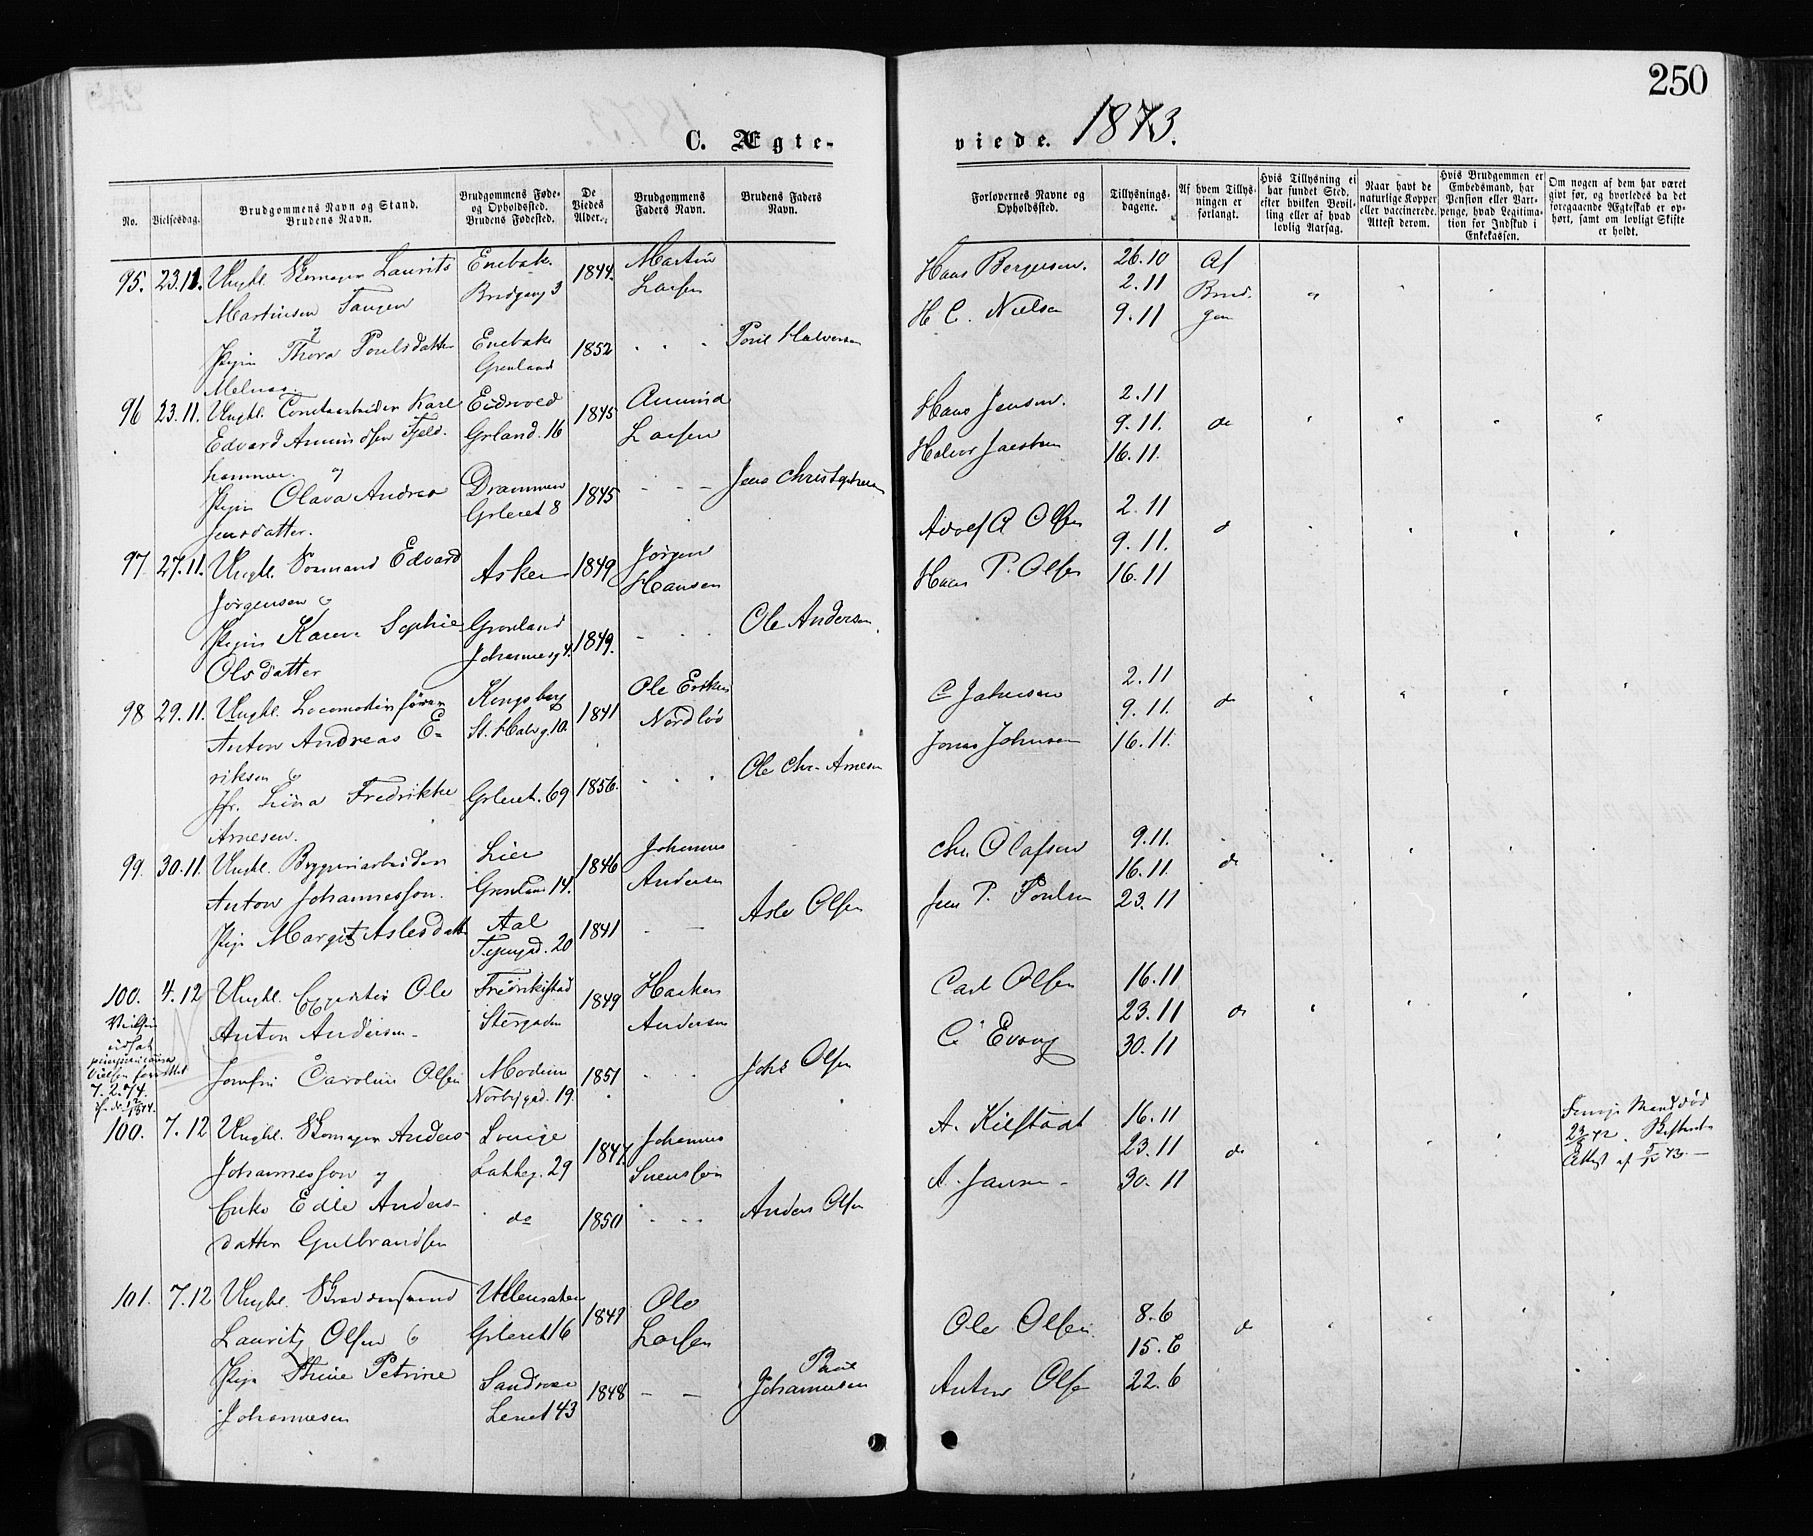 250
C. Ægte-
viede. 1873.
No.
Vielsesdag.
Brudgommens Navn og Stand.
Brudens Navn.
Brudgommens Føde-
og Opholdssted.
Brudens Fødested.
De
Viedes
Alder.
Brudgommens
Faders Navn.
Brudens Faders
Navn.
Forlovernes Navne og
Opholdssted.
Tillysnings-
dagene.
Af hvem Tillys-
ningen er
forlangt.
Hvis Tillysning ei
har fundet Sted,
efter hvilken Bevil-
ling eller af hvad
lovlig Aarsag.
Naar havt de
naturlige Kopper
eller vaccinerede.
Attest derom.
Hvis Brudgommen er
Embedsmand, har
Pension eller Vart-
penge, hvad Legitima-
tion for Indskud i
Enkekassen.
Om nogen af dem har været
gift før, og hvorledes da det
foregaaende Ægteskab er op-
hørt, samt om lovligt Skifte
er holdt.
95. 23.11. Ungkl. Skomager Laurits Enebak 1844. Martin Hans Bergersen. 26.10 Af
Martinsen Tangen Brudgang 3 Larsen H. C. Nielsen 2.11 Brud-
9.11 gom
Pigen Thora Poulsdatter Enebak 1852 Poul Halvorsen
Melnæs. Grønland
96 23.11. Ungkl. Karl Eidsvold 1845 Amund Hans Jensen. 2.11
Edvard Amundsen Fjeld- Grland. 16 Larsen Halvor 9.11. do
hammer og 16.11.
Pigen Olava Andrea Drammen 1845 Jens Christophersen
Jensdatter. Grleret 8
97 27.11. Ungkl. Sømand Edvard Asker 1849 Jørgen Adolf A Olsen 2.11
Jørgensen og Hansen Hans P. Olsen 9.11. do
16.11
Pigen Karen Sophie Grønland 1849. Ole Andersen
Olsdatter Johannesg 4.
98 29.11. Ungkl. Locomotivfører Kongsberg 1841 Ole Eriksen C Jahnsen 2.11
Anton Andreas E- St. Halvg. 10. Nordløv Jonas Johnsen 9.11. do
riksen og 16.11.
Jfr. Lina Fredrikke Grleret. 69 1856. Ole Chr. Arnesen
Arnesen.
99. 30.11. Ungkl. Bryggeriarbeider Lier 1846 Johannes Chr. Olafsen 9.11.
Anton Johannesson. Grønland 14. Andersen Jens P. Poulsen 16.11 do
23.11
Pige Margit Aslesdatt Aal 1841 Asle Olsen
20
100. 4.12 Ungkl. Expeditør Ole Fredrikstad 1849 Haaken Carl Olsen 16.11
Anton Andersen Storgaden Andersen C. Evang 23.11 do
30.11
Vielsen
udsat
Vielsen forrettet
7.2.74.
Jomfru Caroline Olsen Modum 1851 Johs Olsen
Norbygad. 19.
100. 7.12 Ungkl. Skomager Anders 1847. Johannes A. Kielstadt 16.11
Johannesson og Lakkeg. 29 Svensson A. Jansen 23.11 do
30.11
Enke Edle Anders- do 1850 Anders Olsen
datter Gulbrandsen
Forrige Mand død
23/8 72.
Attest af
101. 7.12 Ungkl. Skræddersvend Ullensaker 1849 Ole Ole Olsen 8.6
Lauritz Olsen og Grleret 16 Larsen Anton Olsen 15.6 do
22.6
Pige Thrine Petrine Sandvær 1848 Paul
Johannesen Leret 43 Johannesen